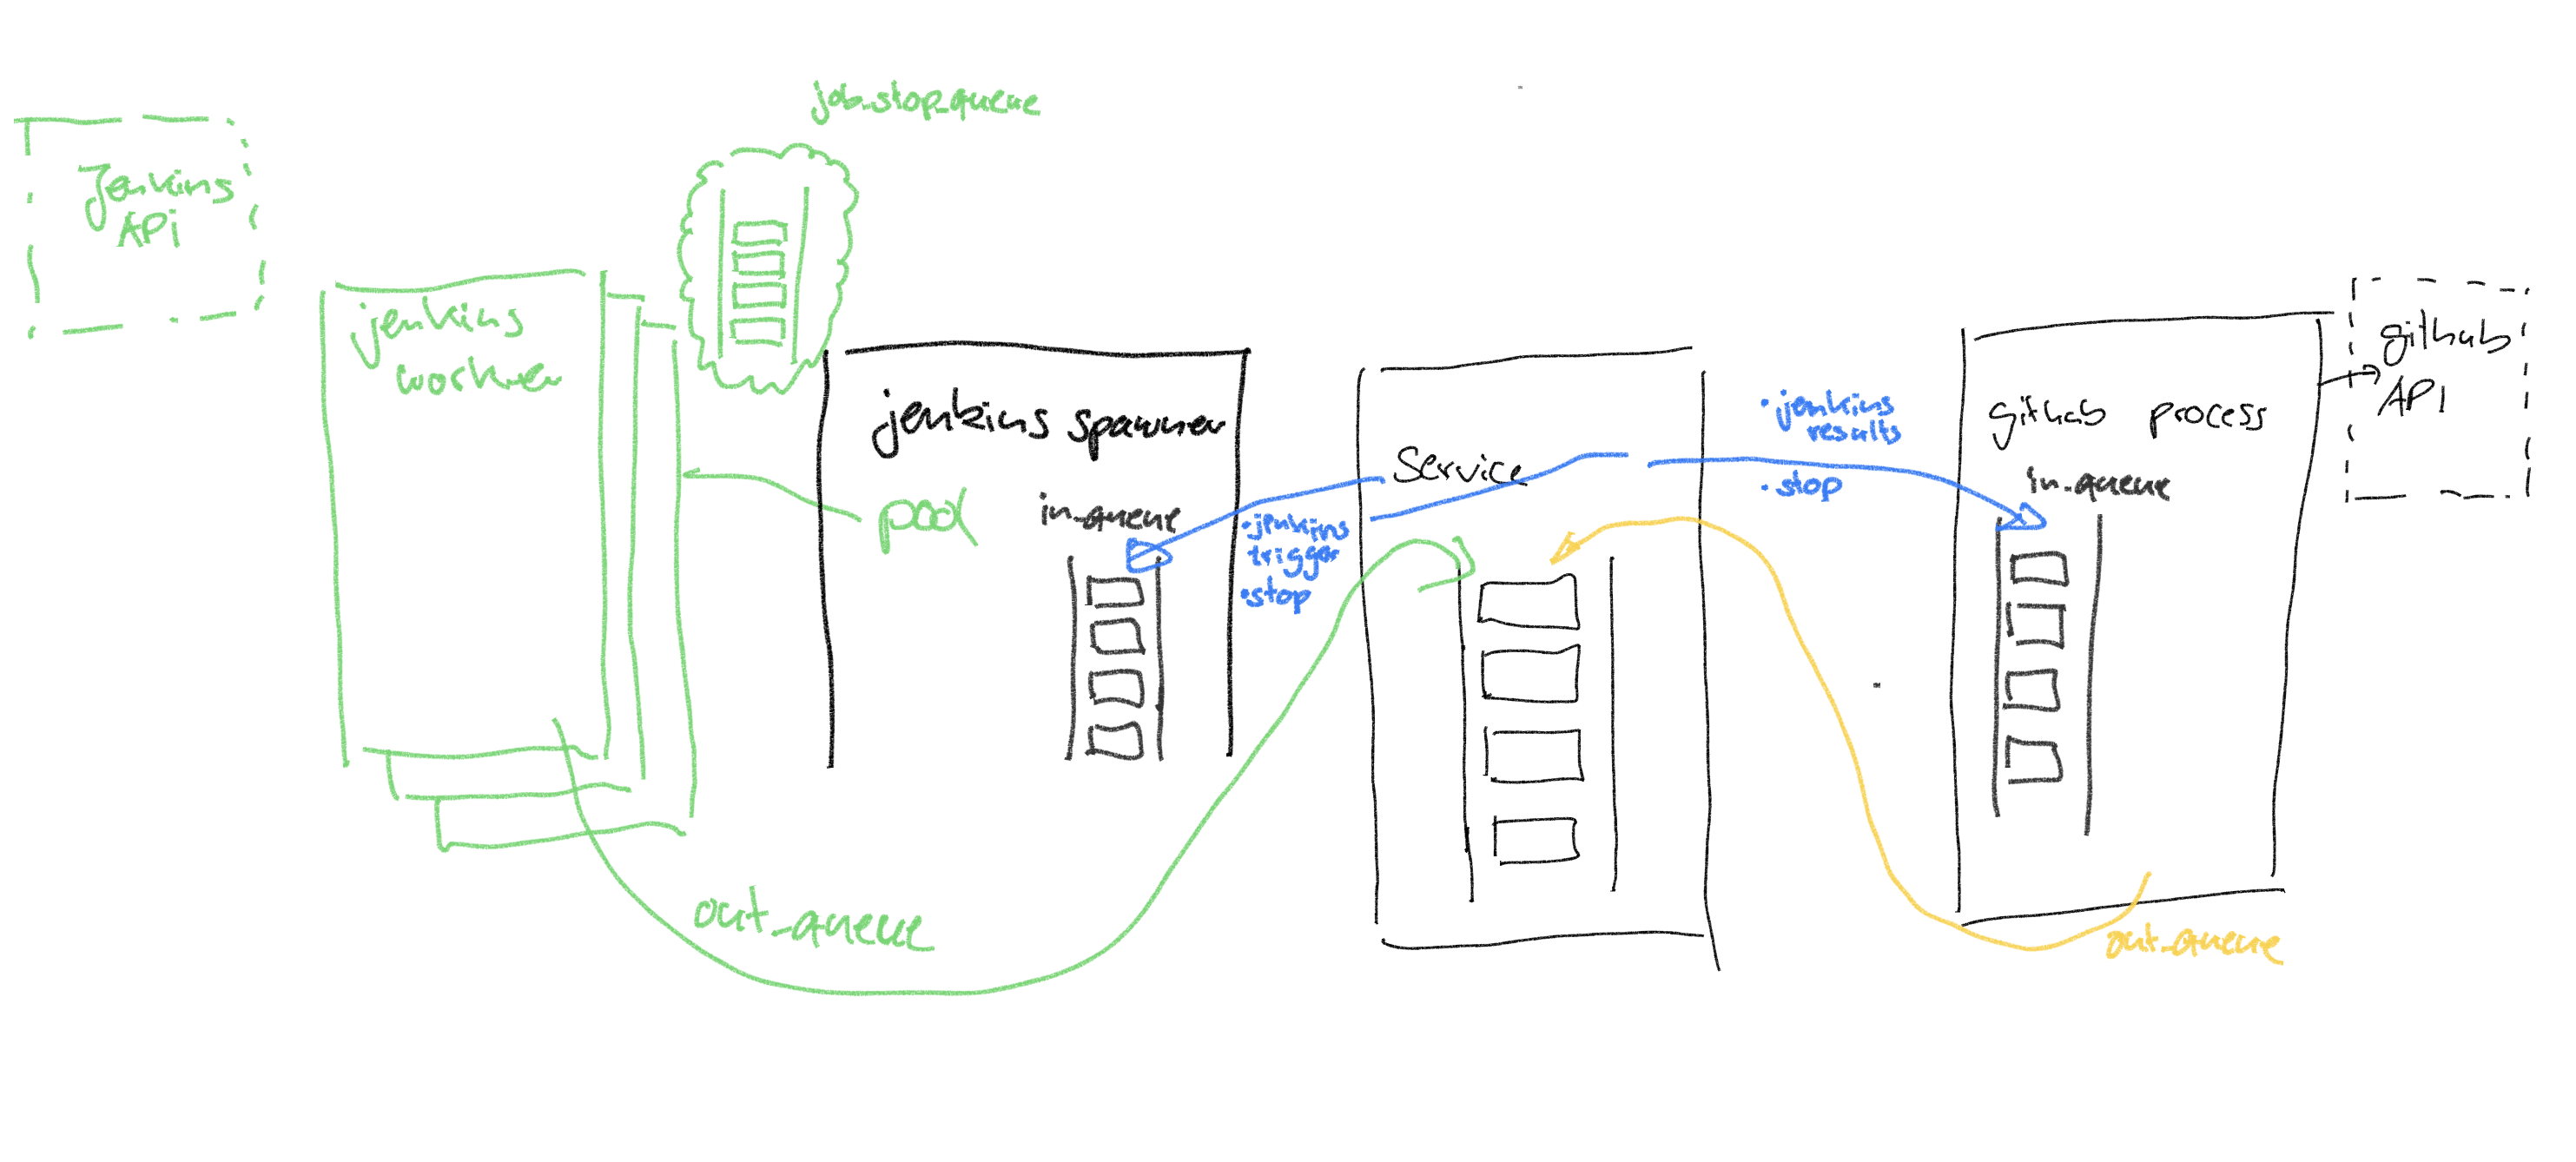 job_stop_queue
Jenkins
API
jenkins
worker
jenkins spawner
pool
in_queue
• jenkins
trigger
• stop
Service
• jenkins
results
• stop
github process
in_queue
github
API
out_queue
out_queue